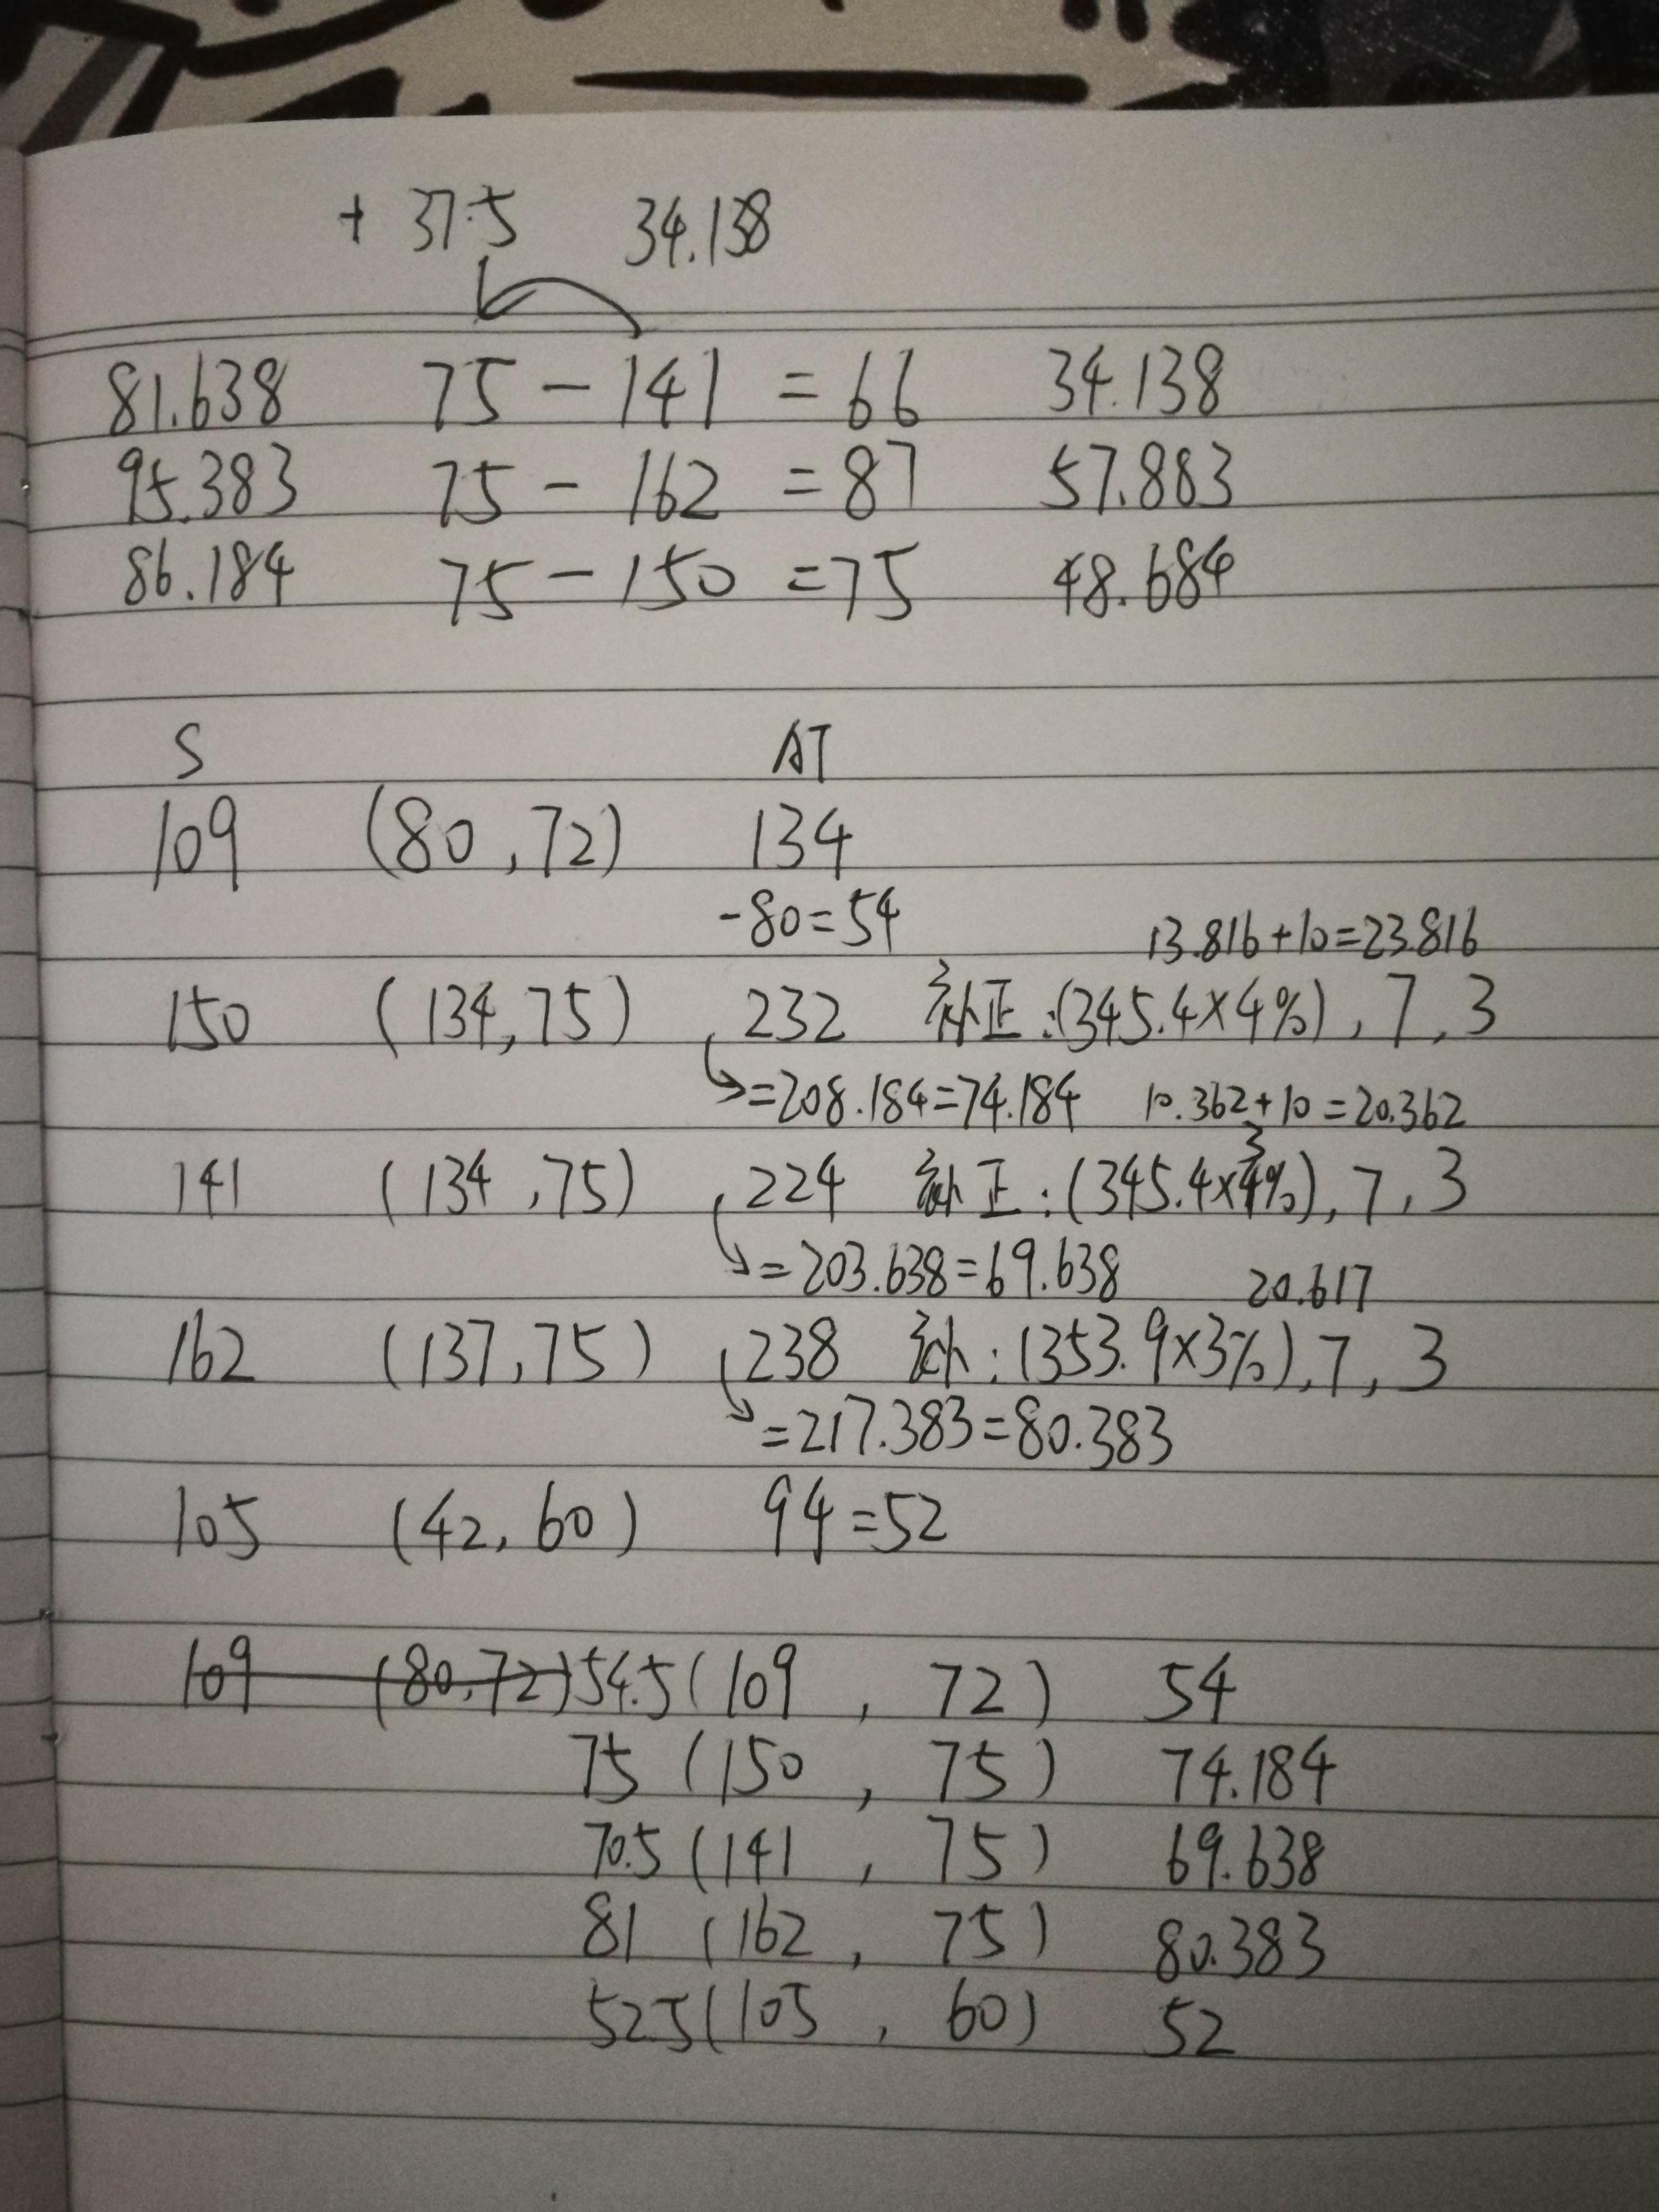 + 37.5 34.138
81.638 75 - 141 = 66 34.138
95.383 75 - 162 = 87 57.883
86.184 75 - 150 = 75 48.684
S AT
109 (80, 72) 134
-80=54
13.816+10=23.816
150 (134, 75) , 232 补正:(345.4×4%), 7, 3
=208.184=74.184 10.362+10=20.362
141 (134, 75) , 224 补正:(345.4×3%), 7, 3
=203.638=69.638 20.617
162 (137, 75) , 238 补:(353.9×3%), 7, 3
=217.383=80.383
105 (42, 60) 94=52
109 (80, 72) 54.5 (109, 72) 54
75 (150, 75) 74.184
70.5 (141, 75) 69.638
81 (162, 75) 80.383
52.5 (105, 60) 52